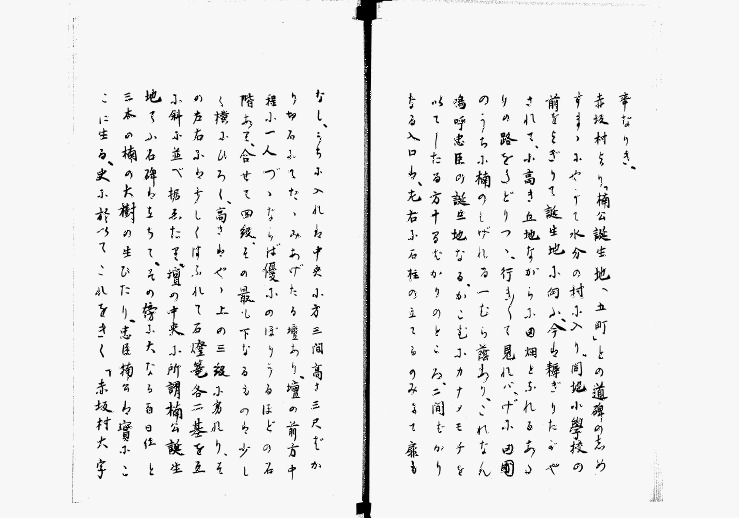 幸なりき、
赤坂村より、「楠公誕生地、五町」との道碑のしめ
すまゝにやがて水分の村に入り、同地小學校の
前をよぎりて誕生地に向ふ、今は耕ぎりたがや
されて、小高き丘地ながらに田畑とふれるあた
りの路をたどりつゝ、行き〳〵て見れバ、げに田圃
のうちに楠のしげれる一むら蔭あり、これなん
嗚呼忠臣の誕生地なる、かこむにカナメモチを
以てしたる方十間ばかりのところ、二間ばかり
なる入口は、左右に石柱の立てるのみにて扉も
なし、うちに入れは中央に方三間高さ三尺ばか
り切石にてたゝみあげたる壇あり、壇の前方中
程に一人づゝならば優にのぼりうるほどの石
階あり、合せて四級、その最も下なるものは少し
く横にひろく、高さはやゝ上の三級に劣れり、そ
の左右には少しくはなれて石燈篭各二基を互
に斜に並べ据えたり、壇の中央に所謂楠公誕生
地てふ石碑は立ちて、その傍に大なる百日紅と
三本の楠の大樹の生ひたり、忠臣楠公は實にこ
こに生る、史に於いてこれをきく「赤坂村大字